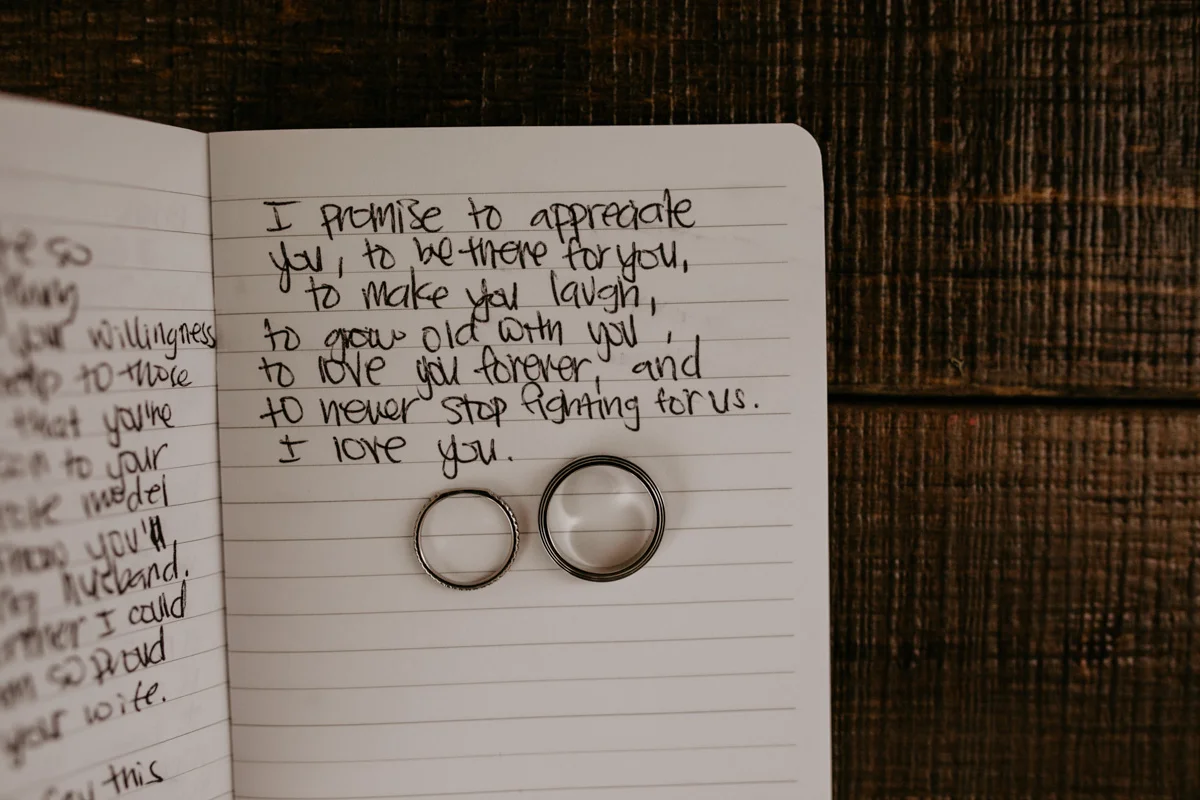 so
your willingness
help to those
that you're
to your
role model
know you'll
my husband.
I could
so proud
your wife.
say this
I promise to appreciate
you, to be there for you,
to make you laugh,
to grow old with you,
to love you forever, and
to never stop fighting for us.
I love you.